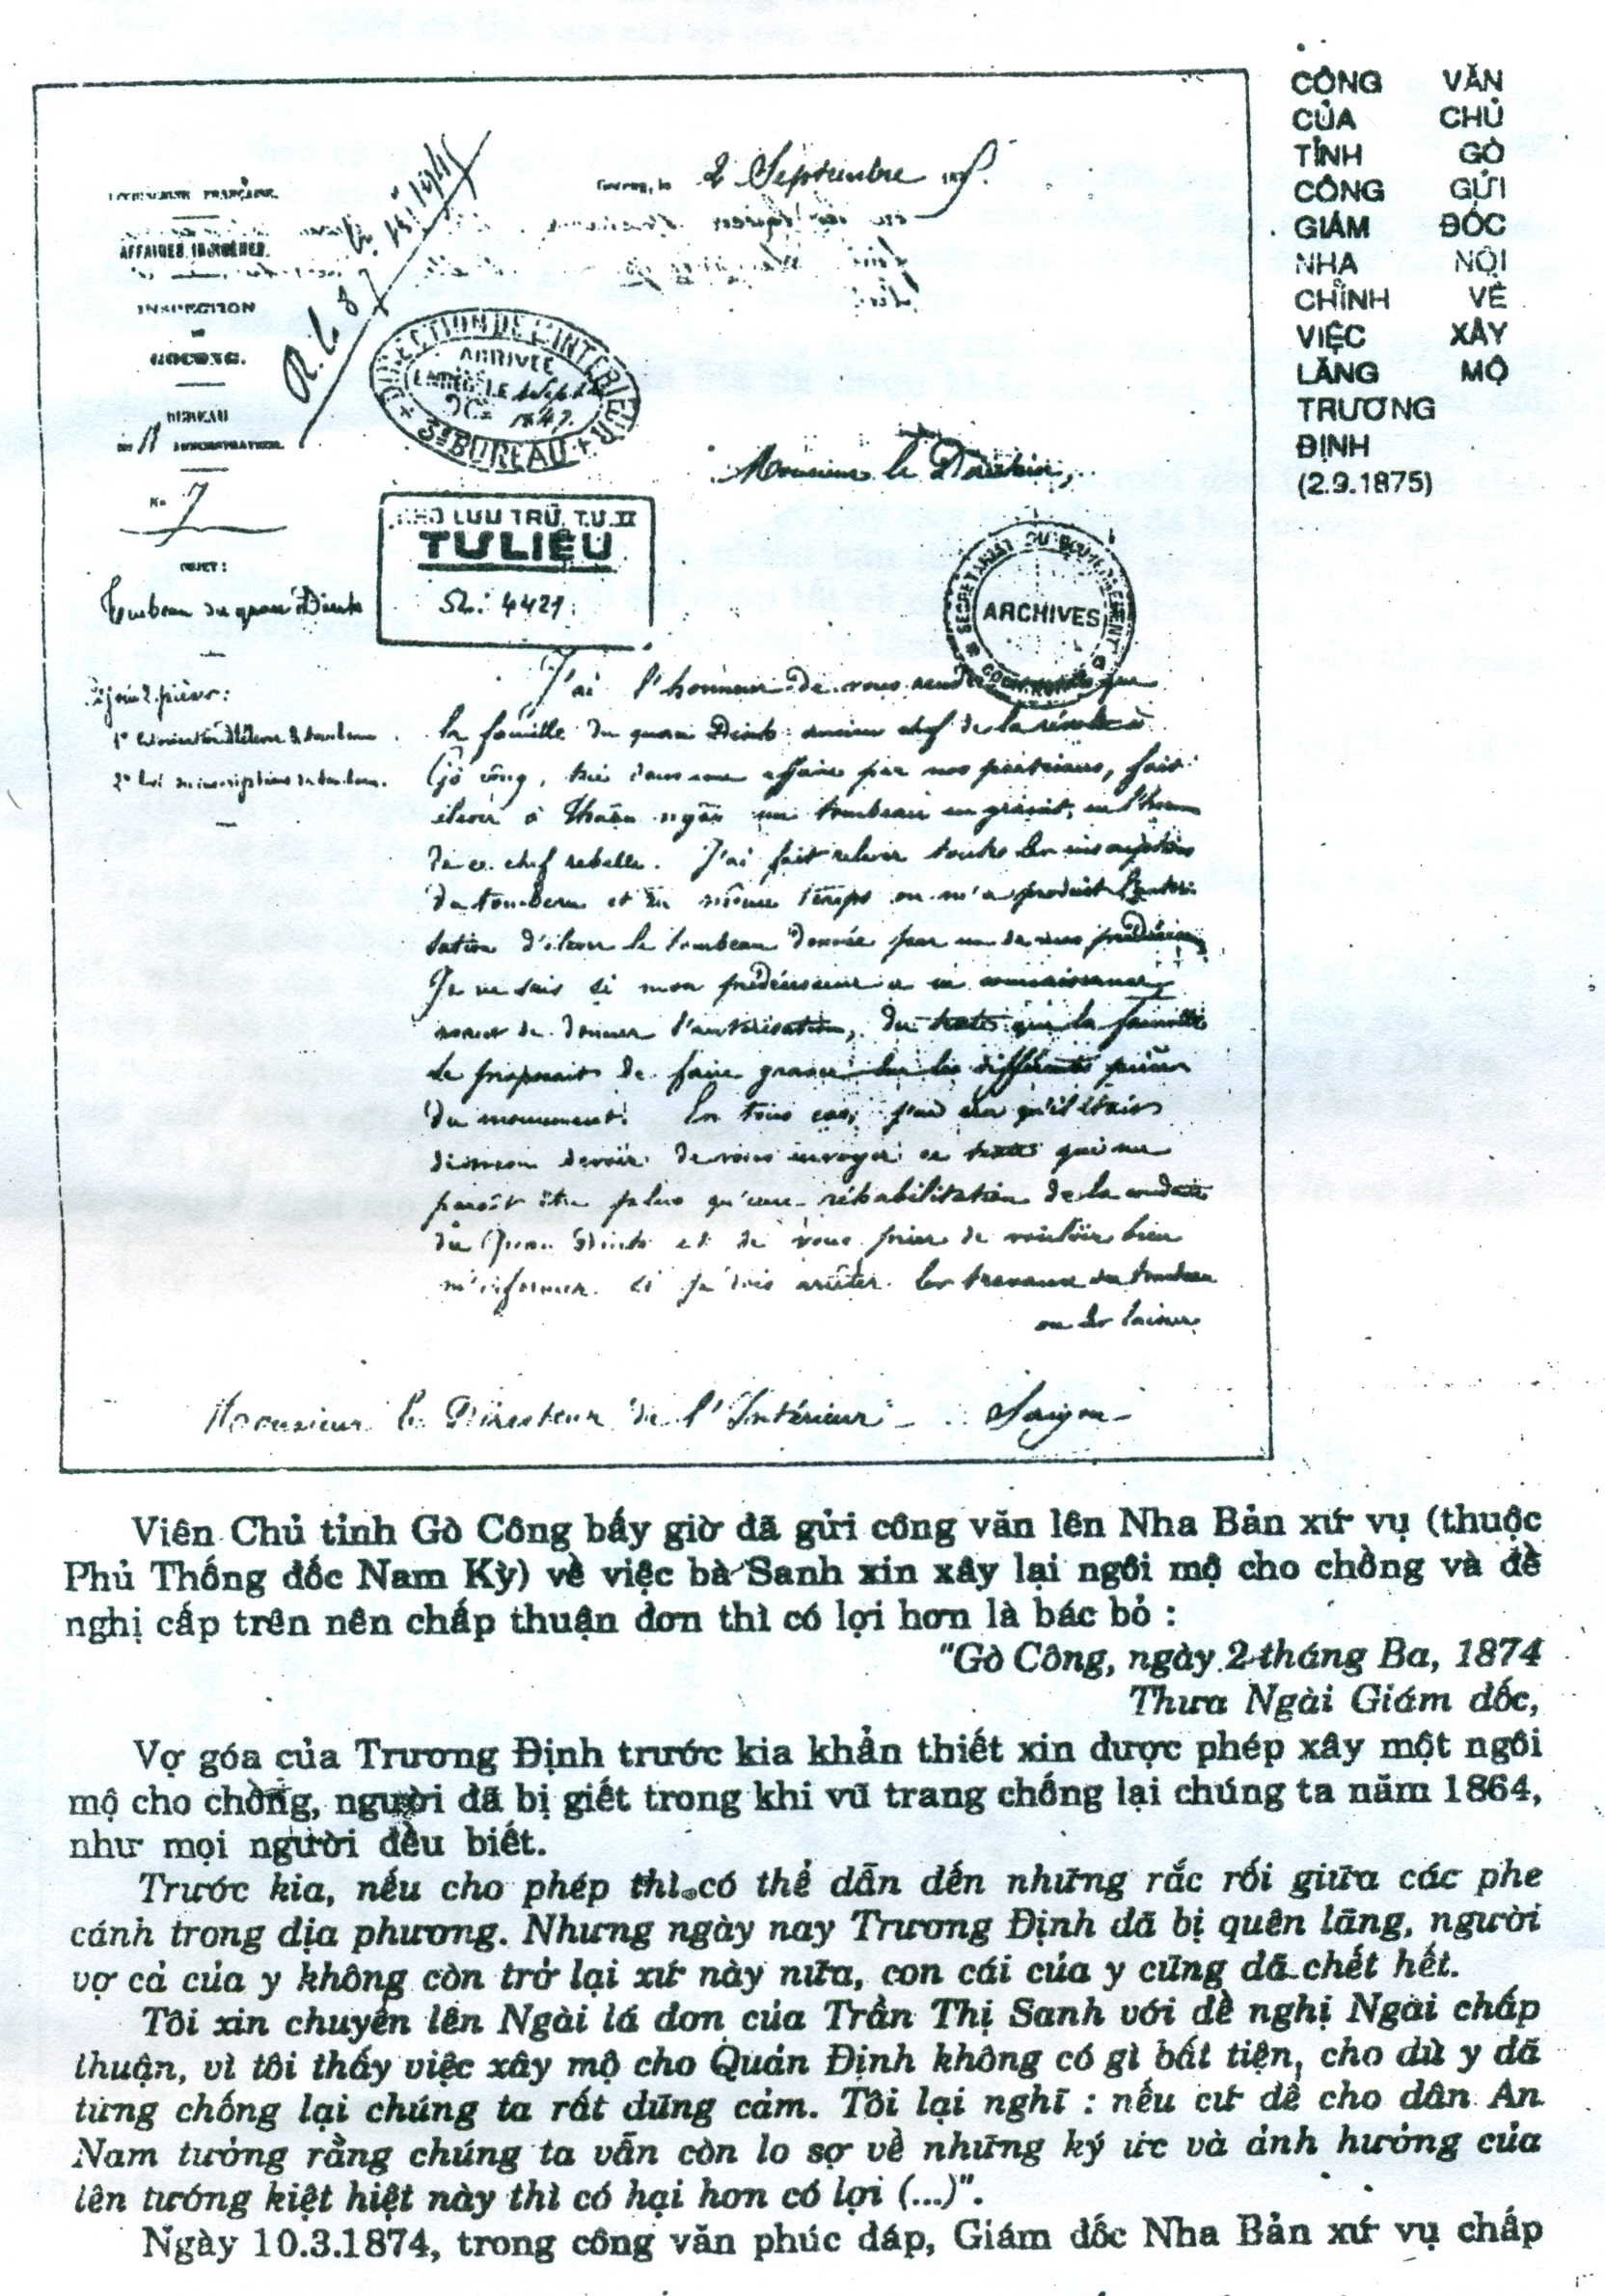 CÔNG VĂN
CỦA CHỦ
TỈNH GÒ
CÔNG GỬI
GIÁM ĐỐC
NHA NỘI
CHÍNH VỀ
VIỆC XÂY
LĂNG MỘ
TRƯƠNG
ĐỊNH
(2.9.1875)
2 Septembre
FRANÇAISE.
AFFAIRES INDIGÈNES.
INSPECTION
DE
GOCONG.
BUREAU
No 7
DIRECTION DE L'INTERIEUR
ARRIVÉE
3e BUREAU
Monsieur le Directeur,
KHO LƯU TRỮ T.Ư. II
TƯ LIỆU
Số: 4421
SECRETARIAT DU GOUVERNEMENT
ARCHIVES
OBJET :
Tombeau du quan Dinh
J'ai l'honneur de vous rendre que
la famille du quan Dinh ancien chef de la révolte à
Gò công, tué dans une affaire par nos partisans, fait
élever à Thuận ngãi un tombeau en granit, en l'honneur
de ce chef rebelle. J'ai fait relever toutes les inscriptions
du tombeau et en même temps on m'a produit l'autori-
sation d'élever le tombeau donnée par un de mes prédécesseurs
Je ne sais si mon prédécesseur a eu connaissance
avant de donner l'autorisation, du texte que la famille
se proposait de faire graver sur les différentes pièces
du monument. En tous cas, j'ai cru qu'il était
de mon devoir de vous envoyer ce texte qui me
paraît être plus qu'une réhabilitation de la conduite
du Quan Dinh et de vous prier de vouloir bien
m'informer si je dois arrêter les travaux du tombeau
ou les laisser
Monsieur le Directeur de l'Intérieur - Saigon -
Viên Chủ tỉnh Gò Công bấy giờ đã gửi công văn lên Nha Bản xứ vụ (thuộc
Phủ Thống đốc Nam Kỳ) về việc bà Sanh xin xây lại ngôi mộ cho chồng và đề
nghị cấp trên nên chấp thuận đơn thì có lợi hơn là bác bỏ :
"Gò Công, ngày 2 tháng Ba, 1874
Thưa Ngài Giám đốc,
Vợ góa của Trương Định trước kia khẩn thiết xin được phép xây một ngôi
mộ cho chồng, người đã bị giết trong khi vũ trang chống lại chúng ta năm 1864,
như mọi người đều biết.
Trước kia, nếu cho phép thì có thể dẫn đến những rắc rối giữa các phe
cánh trong địa phương. Nhưng ngày nay Trương Định đã bị quên lãng, người
vợ cả của y không còn trở lại xứ này nữa, con cái của y cũng đã chết hết.
Tôi xin chuyển lên Ngài lá đơn của Trần Thị Sanh với đề nghị Ngài chấp
thuận, vì tôi thấy việc xây mộ cho Quản Định không có gì bất tiện, cho dù y đã
từng chống lại chúng ta rất dũng cảm. Tôi lại nghĩ : nếu cứ để cho dân An
Nam tưởng rằng chúng ta vẫn còn lo sợ về những ký ức và ảnh hưởng của
lên tướng kiệt hiệt này thì có hại hơn có lợi (...)".
Ngày 10.3.1874, trong công văn phúc đáp, Giám đốc Nha Bản xứ vụ chấp